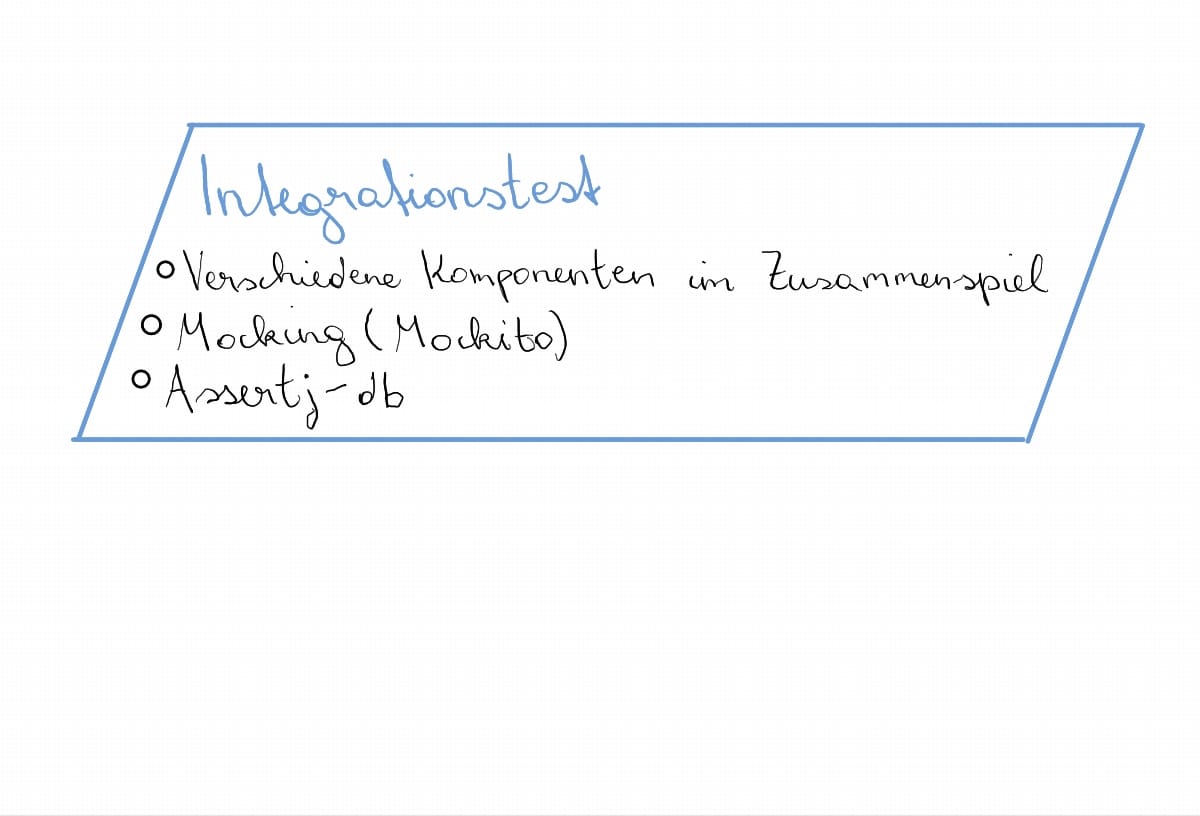 Integrationstest
Verschiedene Komponenten im Zusammenspiel
Mocking (Mockito)
Assertj-db